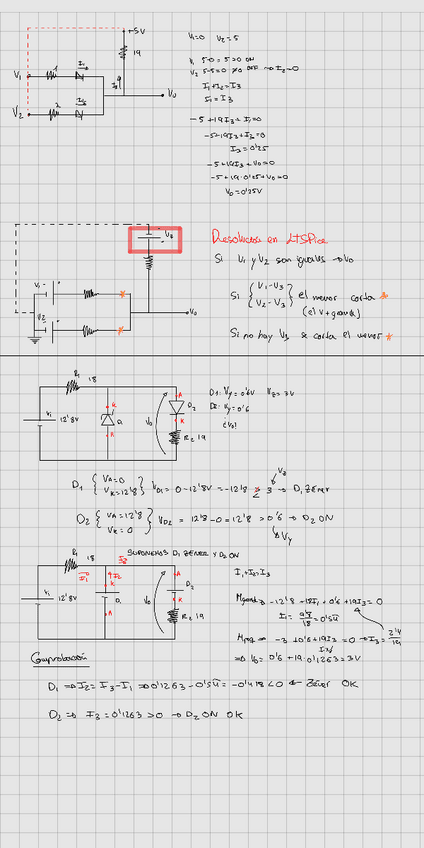 +5V
19
V₁=0 V₂=5
V₁ 5-0=5>0 ON
V₂ 5-5=0 ≯0 OFF → I₂=0
I₁+I₂=I₃
I₁=I₃
V₁
1
V₂
2
V₀
-5+19I₃+I₁=0
-5+19I₃+I₃=0
I₃=0'25
-5+19I₃+V₀=0
-5+19·0'25+V₀=0
V₀=0'25V
V₃
Resolvemos en LTSPice
Si V₁ y V₂ son iguales →V₀
Si { V₁-V₃
V₂-V₃ } el menor corta *
(el V+grande)
Si no hay V₃ se corta el menor *
V₁
V₂
V₀
R₁
18
Vi
12'8V
K
D₁
A
V₀
A
D₂
K
R₂ 19
D1: Vγ=0'6V Vz=3V
D2: Vγ=0'6
¿V₀?
D₁ { VA=0
VK=12'8 } VD₁=0-12'8V=-12'8 < 3 → D₁ ZENER
Vz
D₂ { VA=12'8
VK=0 } VD₂=12'8-0=12'8>0'6 → D₂ ON
Vγ
SUPONEMOS D₁ ZENER Y D₂ ON
R₁
18
I₁
I₂
I₃
Vi
12'8V
K
D₁
A
V₀
A
D₂
K
R₂ 19
I₁+I₂=I₃
-12'8+18I₁+0'6+19I₃=0
-3+0'6+19I₃=0 → I₃=2'4/19
⇒ V₀=0'6+19·0'1263=3V
Comprobación
D₁ ⇒ I₂=I₃-I₁ ⇒ 0'1263-0'54=-0'418<0 ← Zener OK
D₂ ⇒ I₃=0'1263>0 → D₂ ON OK